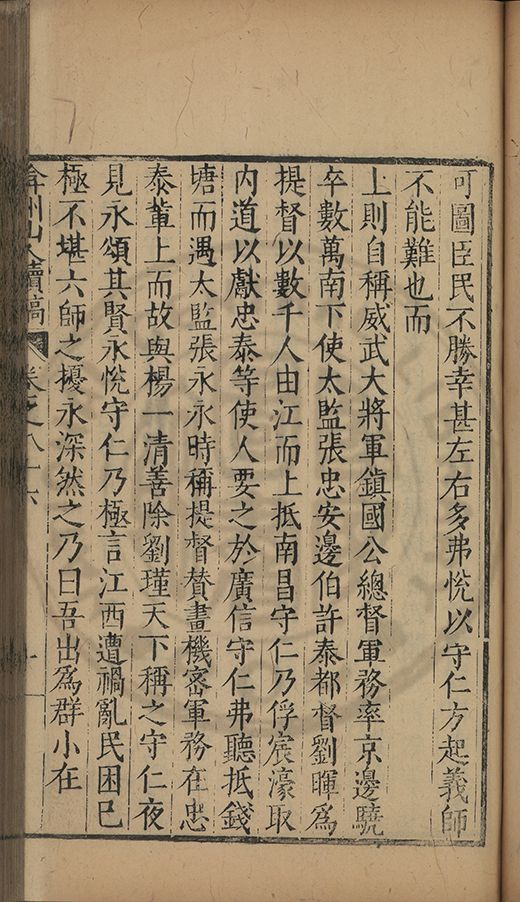 可圖臣民不勝幸甚左右多弗悅以守仁方起義師
不能難也而
上則自稱威武大將軍鎮國公總督軍務率京邊驍
卒數萬南下使太監張忠安邊伯許泰都督劉暉爲
提督以數千人由江而上抵南昌守仁乃俘宸濠取
內道以獻忠泰等使人要之於廣信守仁弗聽抵錢
塘而遇太監張永永時稱提督賛畫機宻軍務在忠
泰軰上而故與楊一清善除劉瑾天下稱之守仁夜
見永頌其賢永悅守仁乃極言江西遭禍亂民困已
極不堪六師之擾永深然之乃曰吾出爲群小在
弇州山人續稿 卷之八十六